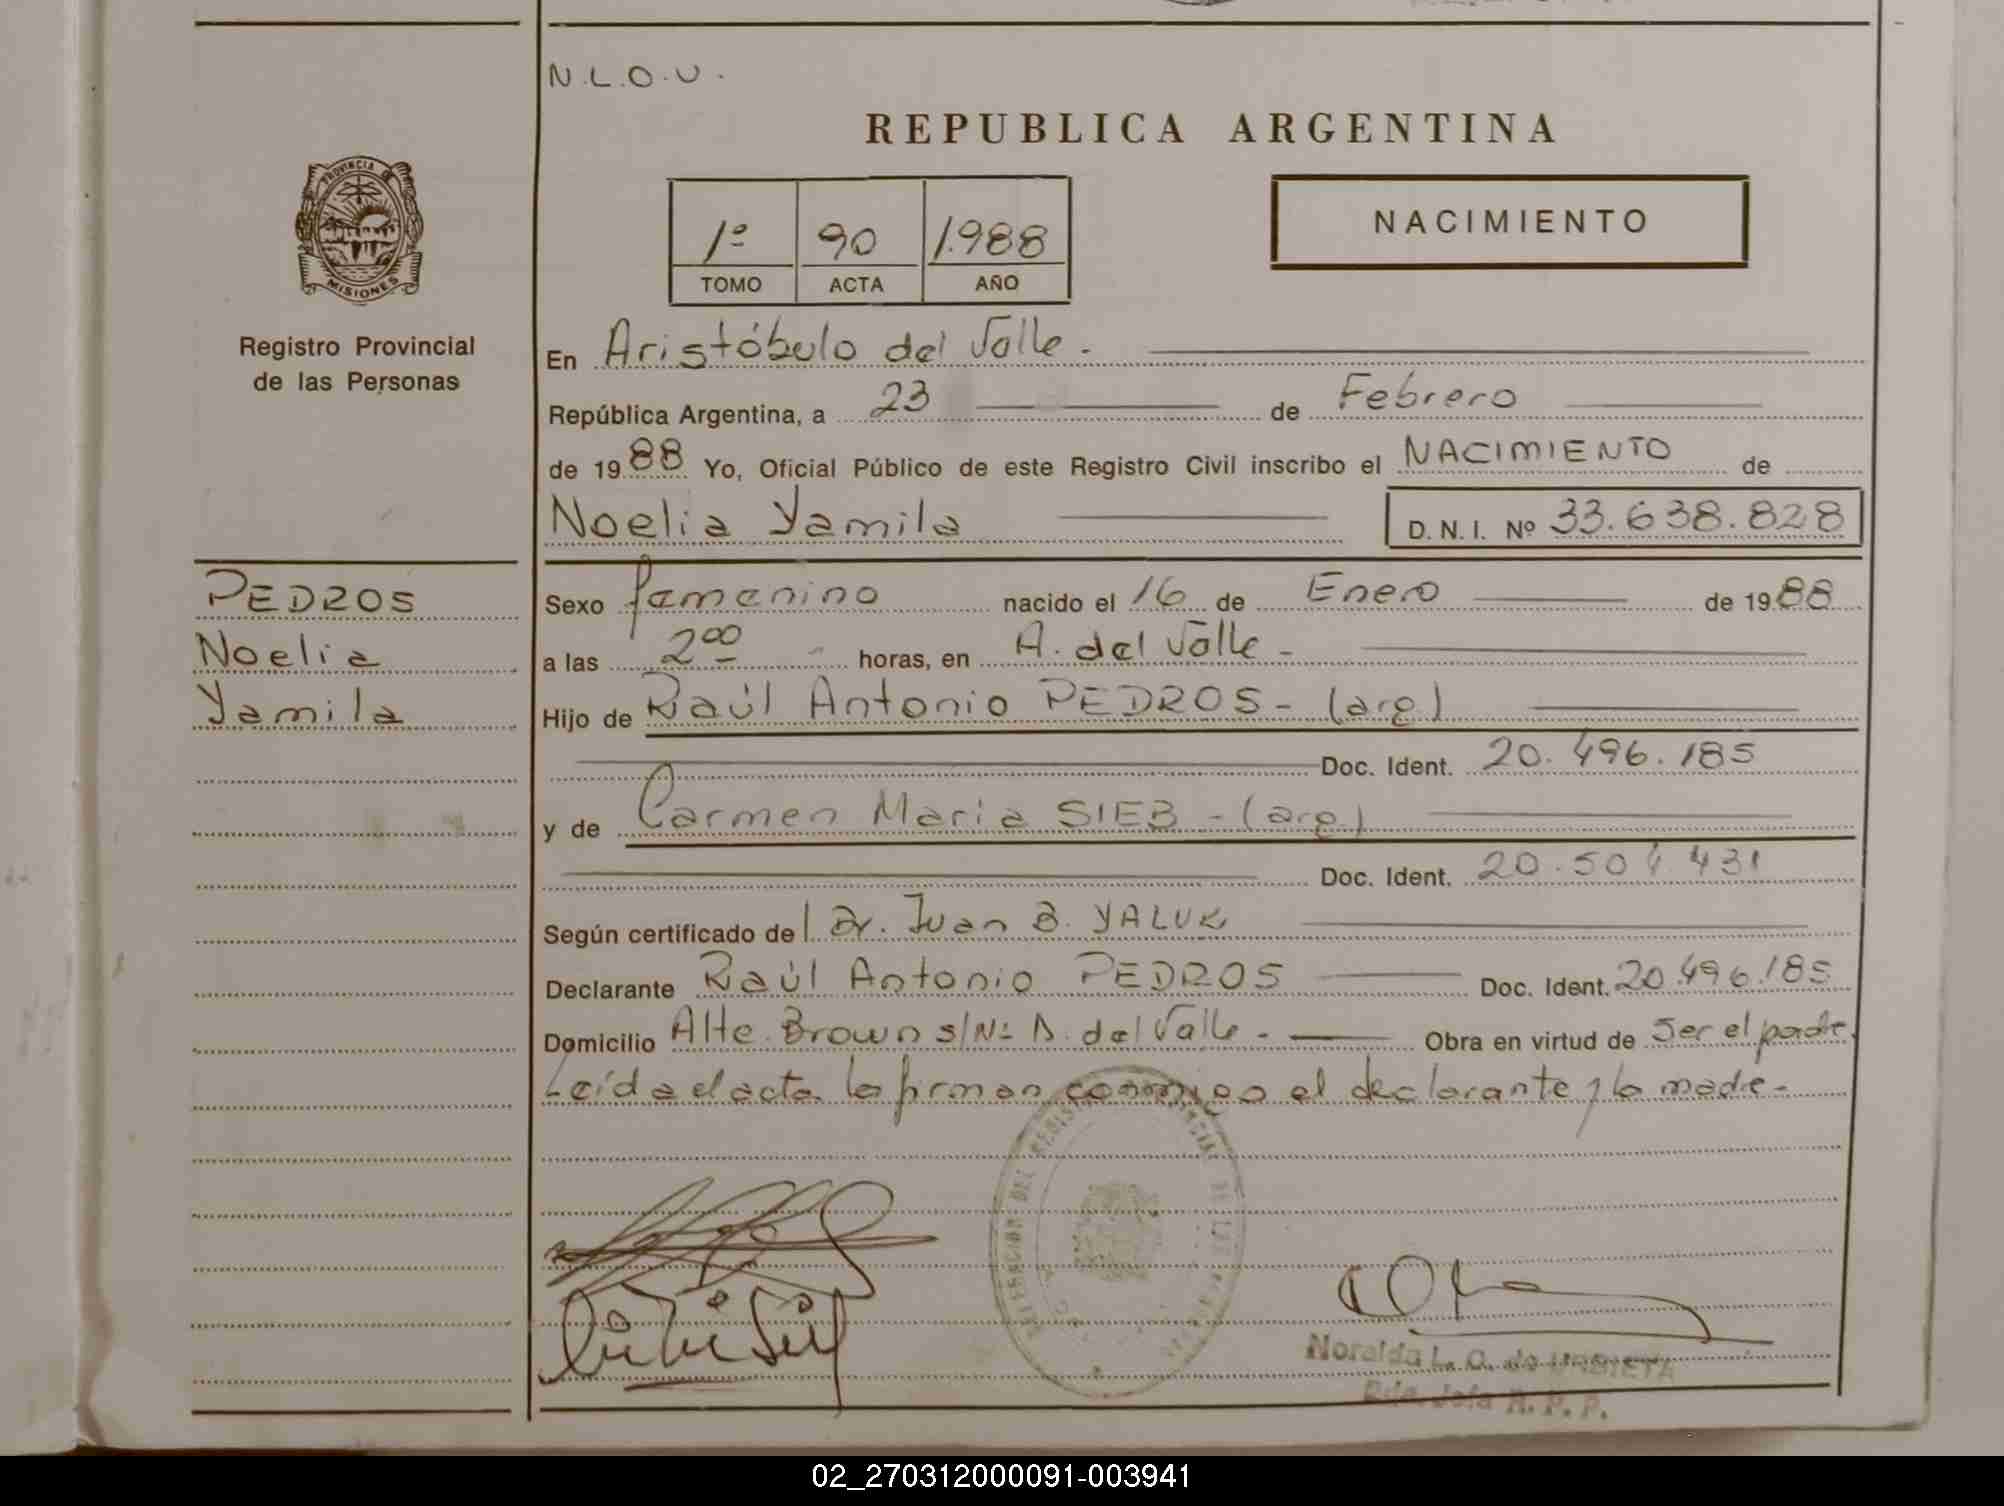 N.L.O.U.
REPUBLICA ARGENTINA
PROVINCIA DE
MISIONES
1º 90 1.988
TOMO ACTA AÑO
NACIMIENTO
Registro Provincial
de las Personas
En Aristóbulo del Valle.-
República Argentina, a 23 de Febrero
de 1988 Yo, Oficial Público de este Registro Civil inscribo el NACIMIENTO de
Noelia Yamila D.N.I. Nº 33.638.828
PEDROS
Noelia
Yamila
Sexo femenino nacido el 16 de Enero de 1988
a las 2:00 horas, en A. del Valle-
Hijo de Raúl Antonio PEDROS- (arg)
Doc. Ident. 20.496.185
y de Carmen Maria SIEB-(arg)
Doc. Ident. 20.504.431
Según certificado del Dr. Juan B. YALUK
Declarante Raúl Antonio PEDROS Doc. Ident. 20.496.185
Domicilio Alte. Brown s/Nº A. del Valle- Obra en virtud de ser el padre.
Leída el acta la firman conmigo el declarante y la madre-
Noralda L. O. de URBIETA
R. P. P.
02_270312000091-003941